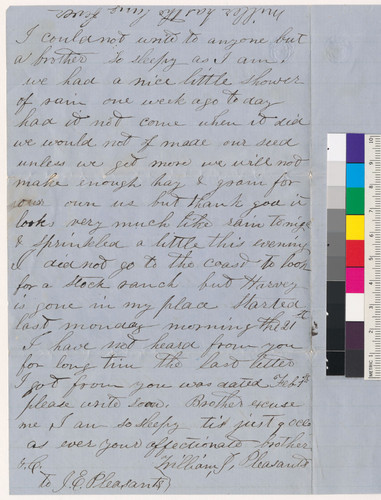 I could not write to anyone but
a brother So sleepy as I am.
we had a nice little shower
of rain one week ago to day
had it not come when it did
we would not of made our seed
unless we get more we will not
make enough hay & grain for
our own us but thank god it
looks very much like rain to nite
& sprinkled a little this evening
I did not go to the coast to look
for a stock ranch but Harvey
is gone in my place started
last monday morning the 21st
I have not heard from you
for long tim the last letter
I got from you was dated Feb
please write soon. Brother excuse
me I am so sleepy tis just
as ever your affectionate brother
William J. Pleasants
to J. E. Pleasants